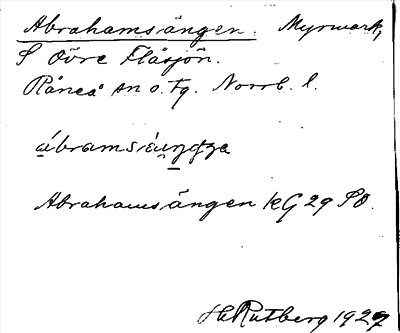 Abrahamsängen. Myrmark,
S Övre Flåsjön.
Råneå sn o. tg. Norrb. l.
Abrahamsängen kG 29 SO.
H Rutberg 1927